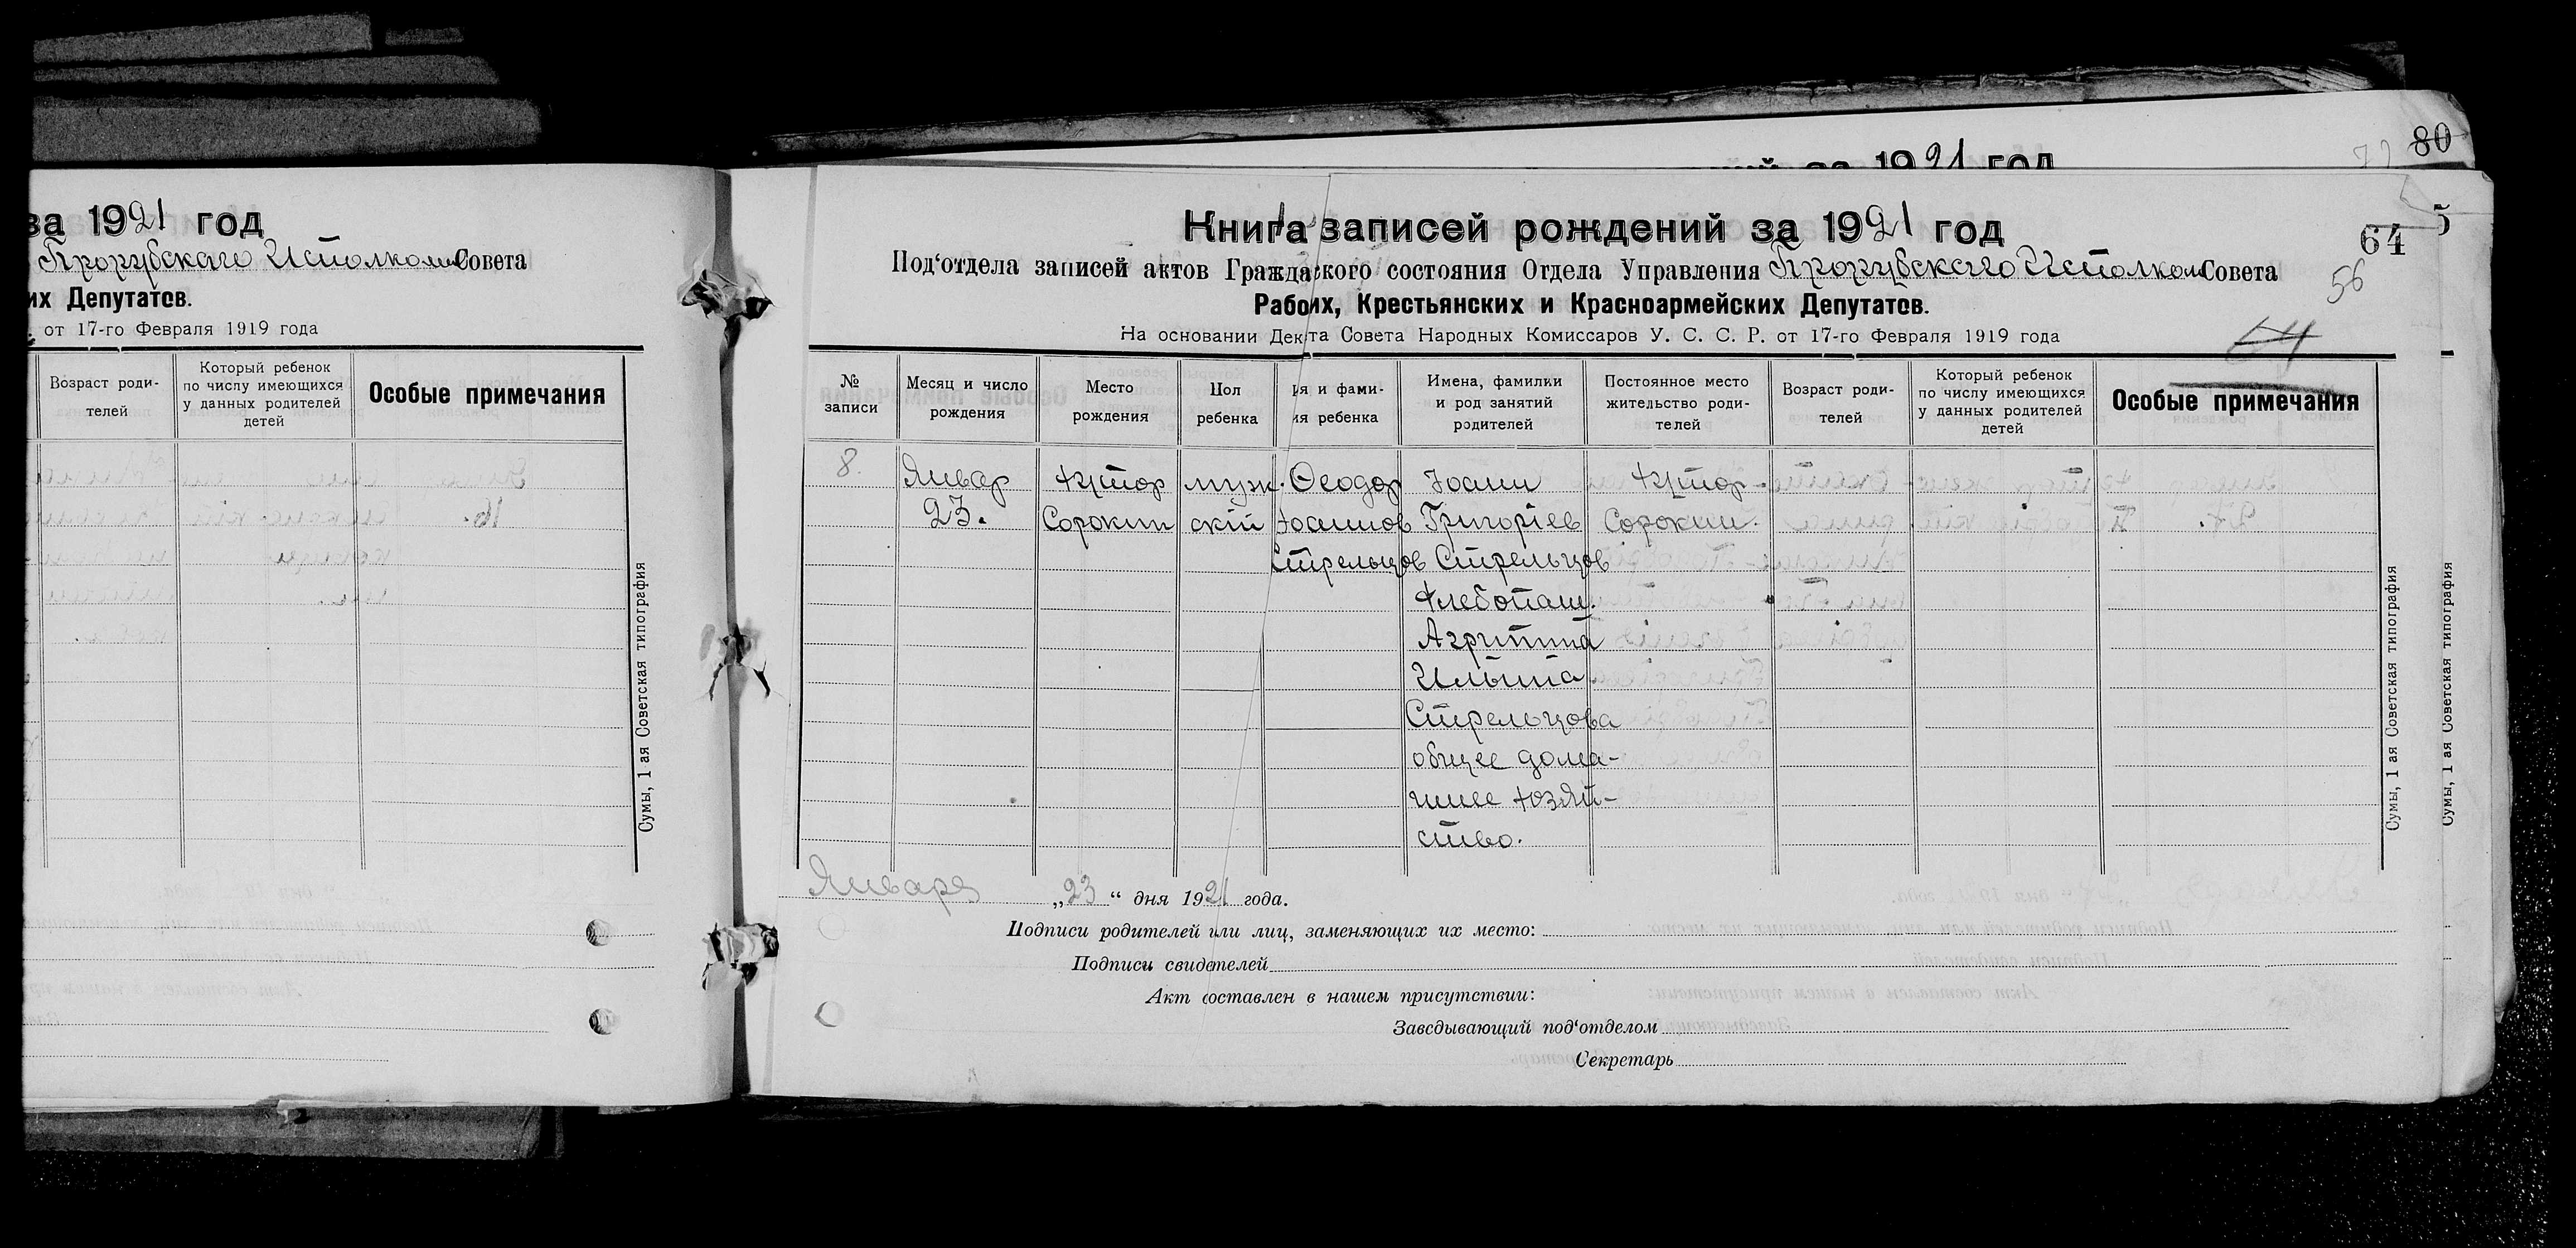 80
за 1921 год
Прорубскаго Исполкома Совета
их Депутатов.
от 17-го Февраля 1919 года
Возраст роди-
телей
Который ребенок
по числу имеющихся
у данных родителей
детей
Особые примечания
Сумы, 1 ая Советская типография
Книга записей рождений за 1921 год
64
5
Под'отдела записей актов Граждаского состояния Отдела Управления Прорубскаго Исполком Совета
56
Рабоих, Крестьянских и Красноармейских Депутатов.
На основании Декта Совета Народных Комиссаров У. С. С. Р. от 17-го Февраля 1919 года
64
№
записи
Месяц и число
рождения
Место
рождения
Пол
ребенка
ия и фами-
ия ребенка
Имена, фамилии
и род занятий
родителей
Постоянное место
жительство роди-
телей
Возраст роди-
телей
Который ребенок
по числу имеющихся
у данных родителей
детей
Особые примечания
8.
Январ
23.
Хутор
Сорокин
муж.
скій
Ѳеодор
Іоаннов
Стрельцов
Іоанн
Григоріев
Стрельцов
Хлебопаш.
Агрипина
Ильина
Стрельцова
общее дома-
шнее хозяй-
ство.
Хутор
Сорокин.
Сумы, 1 ая Советская типография
Сумы, 1 ая Советская типография
Января „23“ дня 1921 года.
Подписи родителей или лиц, заменяющих их место:
Подписи свидетелей
Акт составлен в нашем присутствии:
Заведывающий под'отделом
Секретарь